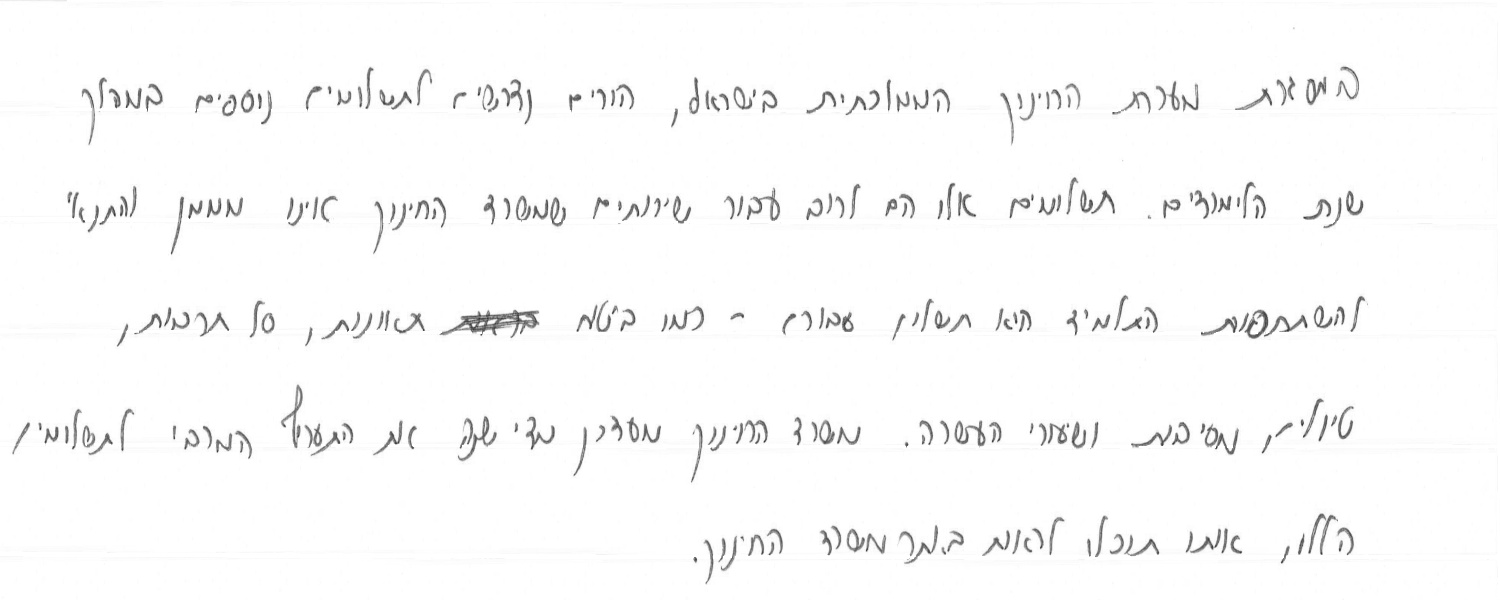 במסגרת מערכת החינוך הממלכתית בישראל, הורים נדרשים לתשלומים נוספים במהלך
שנת הלימודים. תשלומים אלו הם לרוב עבור שירותים שמשרד החינוך אינו מממן והתנאי
להשתתפות התלמיד היא תשלום עבורם - כמו ביטוח תאונות, סל תרבות,
טיולים, מסיבות ושיעורי העשרה. משרד החינוך מעדכן מדי שנה את התעריף המרבי לתשלומים
הללו, אותו תוכלו לראות באתר משרד החינוך.